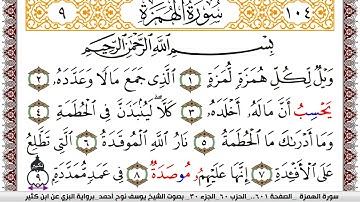 ٩ سُورَةُ الْهُمَزَةِ ١٠٤
بِسْمِ اللَّهِ الرَّحْمَٰنِ الرَّحِيمِ
وَيْلٌ لِّكُلِّ هُمَزَةٍ لُّمَزَةٍ ١ الَّذِي جَمَعَ مَالًا وَعَدَّدَهُ ٢
يَحْسِبُ أَنَّ مَالَهُ أَخْلَدَهُ ٣ كَلَّا لَيُنبَذَنَّ فِي الْحُطَمَةِ ٤
وَمَا أَدْرَىٰكَ مَا الْحُطَمَةُ ٥ نَارُ اللَّهِ الْمُوقَدَةُ ٦ الَّتِي تَطَّلِعُ
عَلَى الْأَفْئِدَةِ ٧ إِنَّهَا عَلَيْهِم مُّوصَدَةٌ ٨ فِي عَمَدٍ مُّمَدَّدَةٍ ٩
سورة الهمزة .. الصفحة ٦٠١ .. الحزب ٦٠ .. الجزء ٣٠ .. بصوت الشيخ يوسف نوح أحمد .. برواية البزي عن ابن كثير